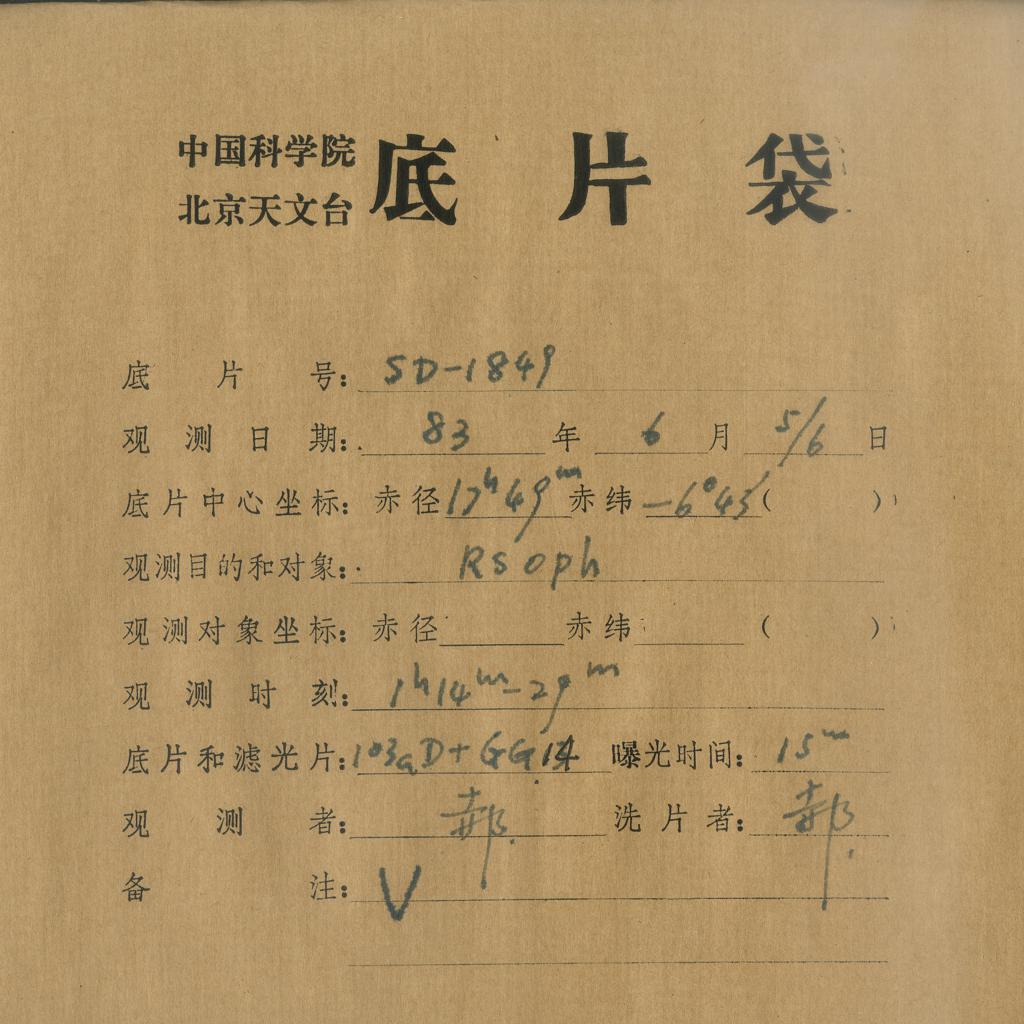 中国科学院
北京天文台
底片袋
底片号: SD-1849
观测日期: 83年6月5/6日
底片中心坐标: 赤径17h49m赤纬-6°45′( )
观测目的和对象: RS Oph
观测对象坐标: 赤径 赤纬 ( )
观测时刻: 1h14m-29m
底片和滤光片: 103aD+GG14 曝光时间: 15m
观测者: 郝 洗片者: 郝
备注: V